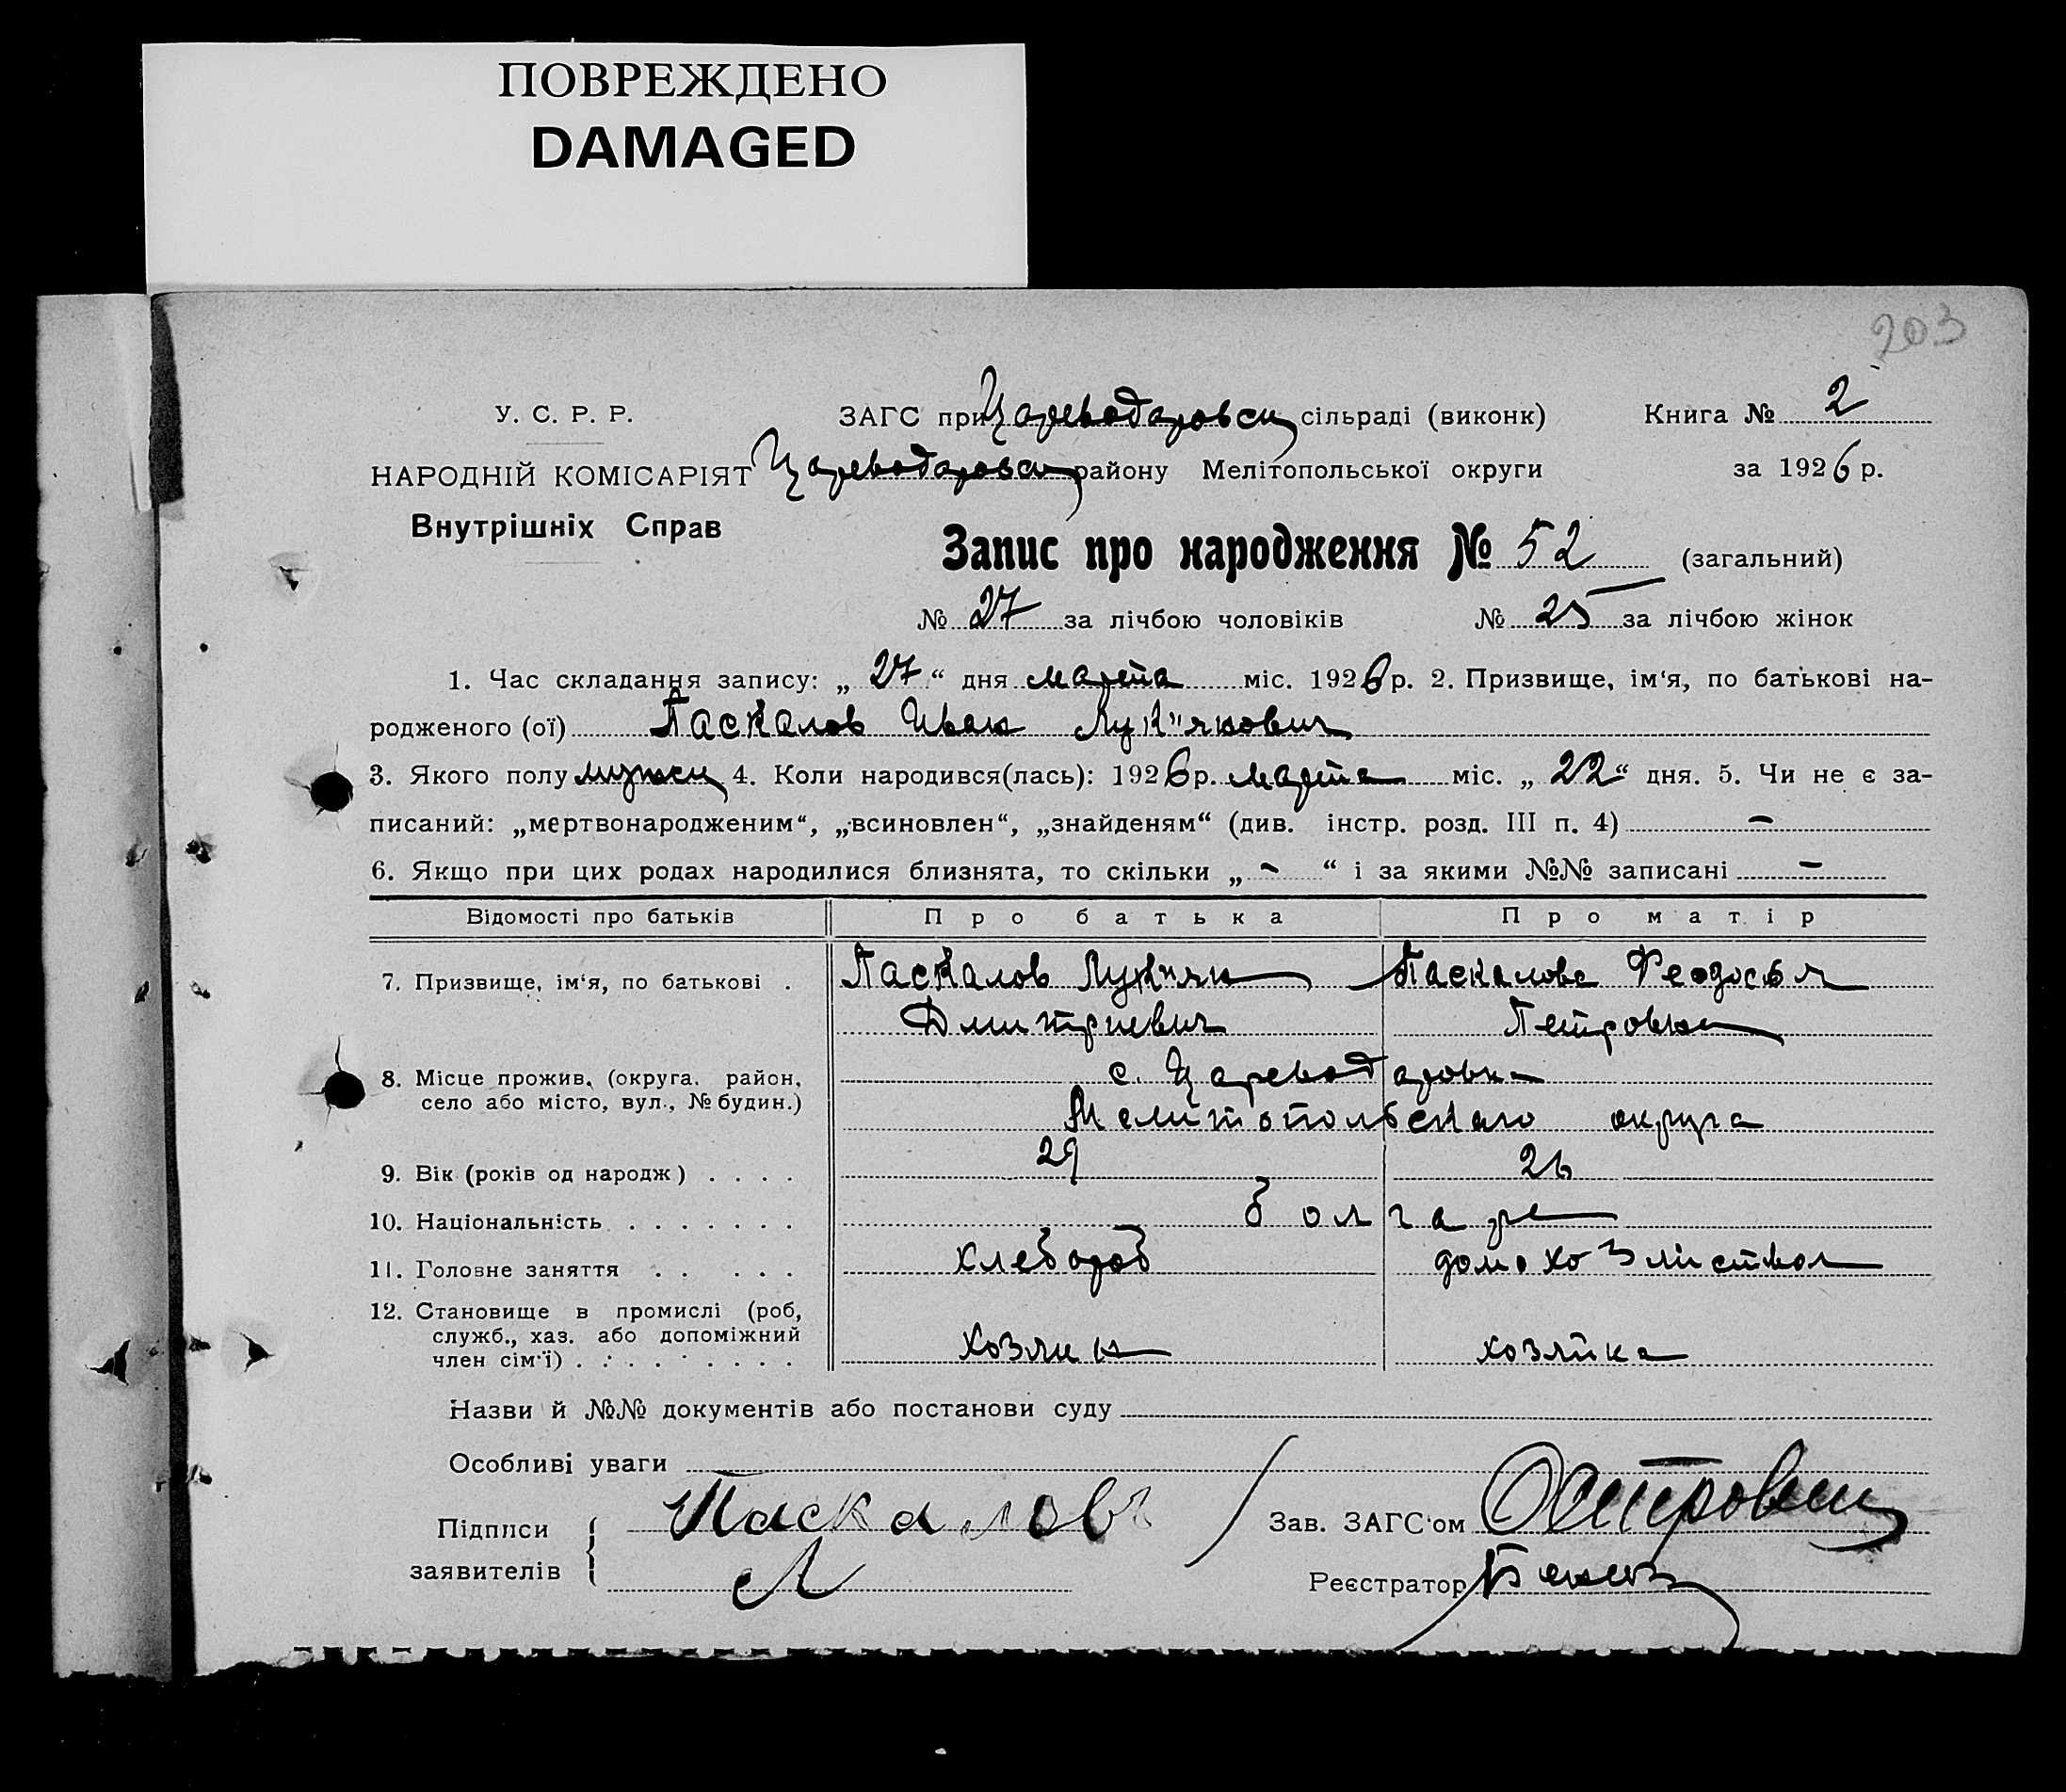 ПОВРЕЖДЕНО
DAMAGED
203
У. С. Р. Р.
ЗАГС при Цареводаровск сільраді (виконк)
Книга № 2
НАРОДНІЙ КОМІСАРІЯТ
Цареводаровск району Мелітопольської округи
за 1926 р.
Внутрішніх Справ
Запис про народження № 52 (загальний)
№ 27 за лічбою чоловіків № 25 за лічбою жінок
1. Час складання запису: „ 27 “ дня марта міс. 1926 р. 2. Призвище, ім‘я, по батькові на-
родженого (ої) Паскалов Иван Лук"янович
3. Якого полу мужск 4. Коли народився(лась): 1926 р. марта міс. „ 22 “ дня. 5. Чи не є за-
писаний: „мертвонародженим“, „всиновлен“, „знайденям“ (див. інстр. розд. III п. 4) –
6. Якщо при цих родах народилися близнята, то скільки „ ~ “ і за якими №№ записані –
Відомості про батьків Про батька Про матір
7. Призвище, ім‘я, по батькові . Паскалов Лук"ян Паскалова Феодосья
Дмитриевич Петровна
8. Місце прожив. (округа, район, с. Цареводаровка
село або місто, вул., № будин.) Мелитопольского округа
9. Вік (років од народж) . . . . 29 26
10. Національність . . . . . . . болгаре
11. Головне заняття . . . . . хлебороб домохозяйством
12. Становище в промислі (роб,
служб., хаз. або допоміжний
член сім‘ї) . . . . . . . . . хозяин хозяйка
Назви й №№ документів або постанови суду
Особливі уваги
Підписи
заявителів
Паскаловъ
Л
Зав. ЗАГС‘ом
Реєстратор